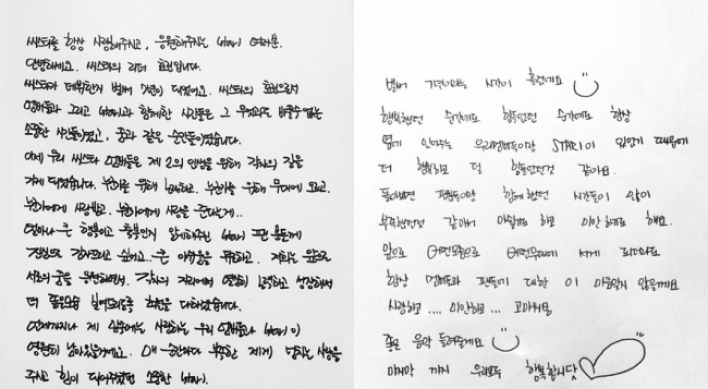 씨스타를 항상 사랑해주시고, 응원해주시는 STAR1 여러분.
안녕하세요. 씨스타의 리더 효린입니다.
씨스타가 데뷔한지 벌써 7년이 되었어요. 씨스타의 효린으로서
멤버들과 그리고 STAR1과 함께한 시간들은 그 무엇과도 바꿀수 없는
소중한 시간들이었고, 꿈과 같은 순간들이었습니다.
이제 우리 씨스타 멤버들은 제 2의 인생을 위해 각자의 길을
가게 되었습니다. 누군가를 위해 노래하고, 누군가를 위해 무대에 오르고,
누군가에게 사랑받고, 누군가에게 사랑을 준다는게..
얼마나 큰 행복이고 축복인지 알게해주신 STAR1 팬 분들께
진심으로 감사드리고 싶어요. 큰 아쉬움을 뒤로하고, 저희도 앞으로
서로의 꿈을 응원하면서, 각자의 자리에서 열심히 노력하고 성장해서
더 좋은모습 보여드리도록 최선을 다하겠습니다.
언제까지나 제 마음속에는 사랑하는 우리 멤버들과 STAR1이
영원히 남아있을거예요. 매 순간마다 부족한 제게 넘치는 사랑을
주시고 힘이 되어주셨던 소중한 STAR1.
벌써 7년이라는 시간이 흘렀네요
행복했던 순간에도 힘들었던 순간에도 항상
옆에 있어주는 우리멤버들이랑 STAR1이 있었기 때문에
더 행복하고 덜 힘들었던것 같아요.
돌아보면 팬분들이랑 함께했던 시간들이 많이
부족했던것 같아서 아쉽기도 하고 미안하기도 해요.
앞으로 어떤모습으로 어떤무대에 서게 되더라도
항상 멤버들과 팬들에 대한 이 마음잊지 않을게요
사랑하고 .... 미안하고 .... 고마워요
좋은 음악 들려줄게요
마지막 까지 우리모두 행복합시닷